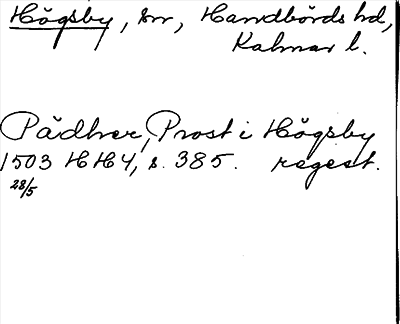 Högsby, sn, Handbörds hd,
Kalmar l.
Pädher, Prost i Högsby
1503 HH4, s. 385. regest.
28/5